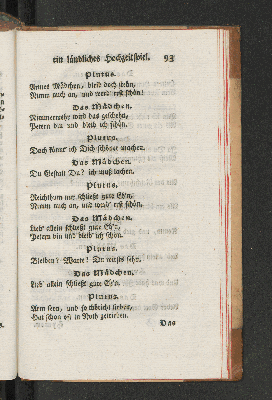 ein ländliches Hochzeitspiel. 93
Plutus.
Armes Mädchen, bleib doch stehn,
Nimm mich an, und werd' erst schön!
Das Mädchen.
Nimmermehr wird das geschehn,
Petern bin und bleib ich schön.
Plutus.
Doch könnt' ich Dich schöner machen.
Das Mädchen.
Du Gestalt Du? ich muß lachen.
Plutus.
Reichthum nur schließt gute Eh'n,
Nimm mich an, und werd' erst schön.
Das Mädchen.
Lieb' allein schließt gute Eh'n,
Petern bin und bleib' ich schön.
Plutus.
Bleiben? Warte! Du wirsts sehn.
Das Mädchen.
Lieb' allein schließt gute Eh'n.
Plutus.
Arm seyn, und so thöricht lieben,
Hat schon oft in Noth getrieben.
Das